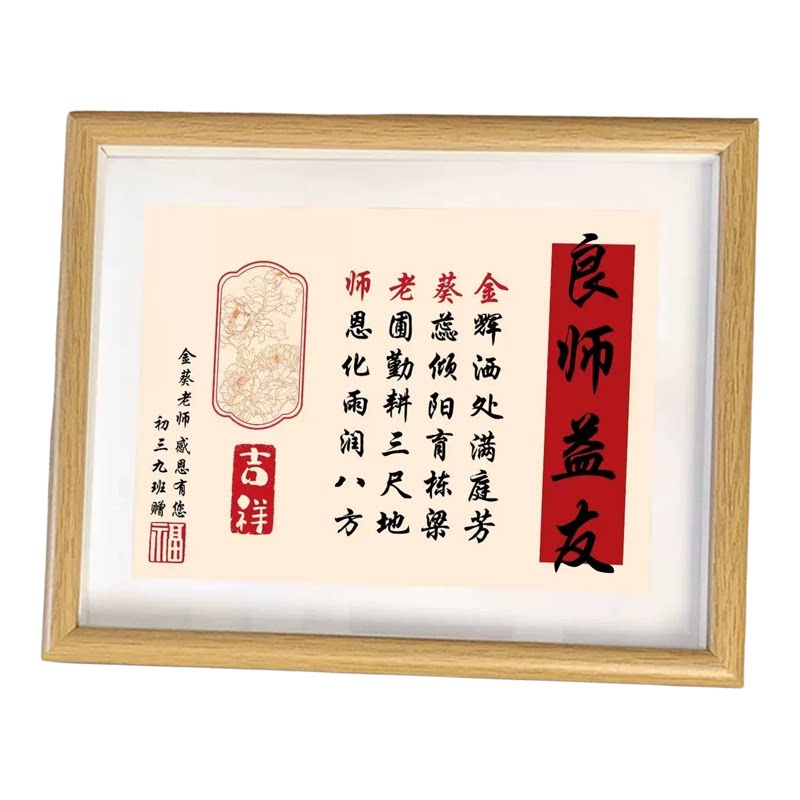 良师益友
金辉洒处满庭芳
葵蕊倾阳育栋梁
老圃勤耕三尺地
师恩化雨润八方
吉祥
金葵老师感恩有您
初三九班赠
福